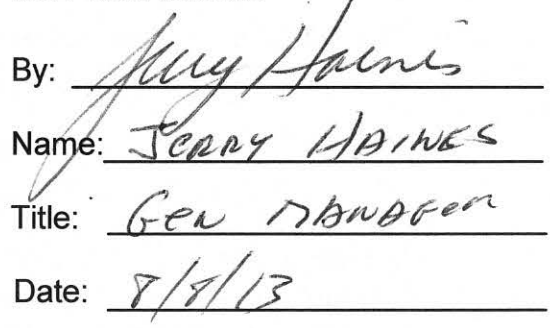 By: Jerry Haines
Name: JERRY HAINES
Title: Gen MANAGER
Date: 8/8/13